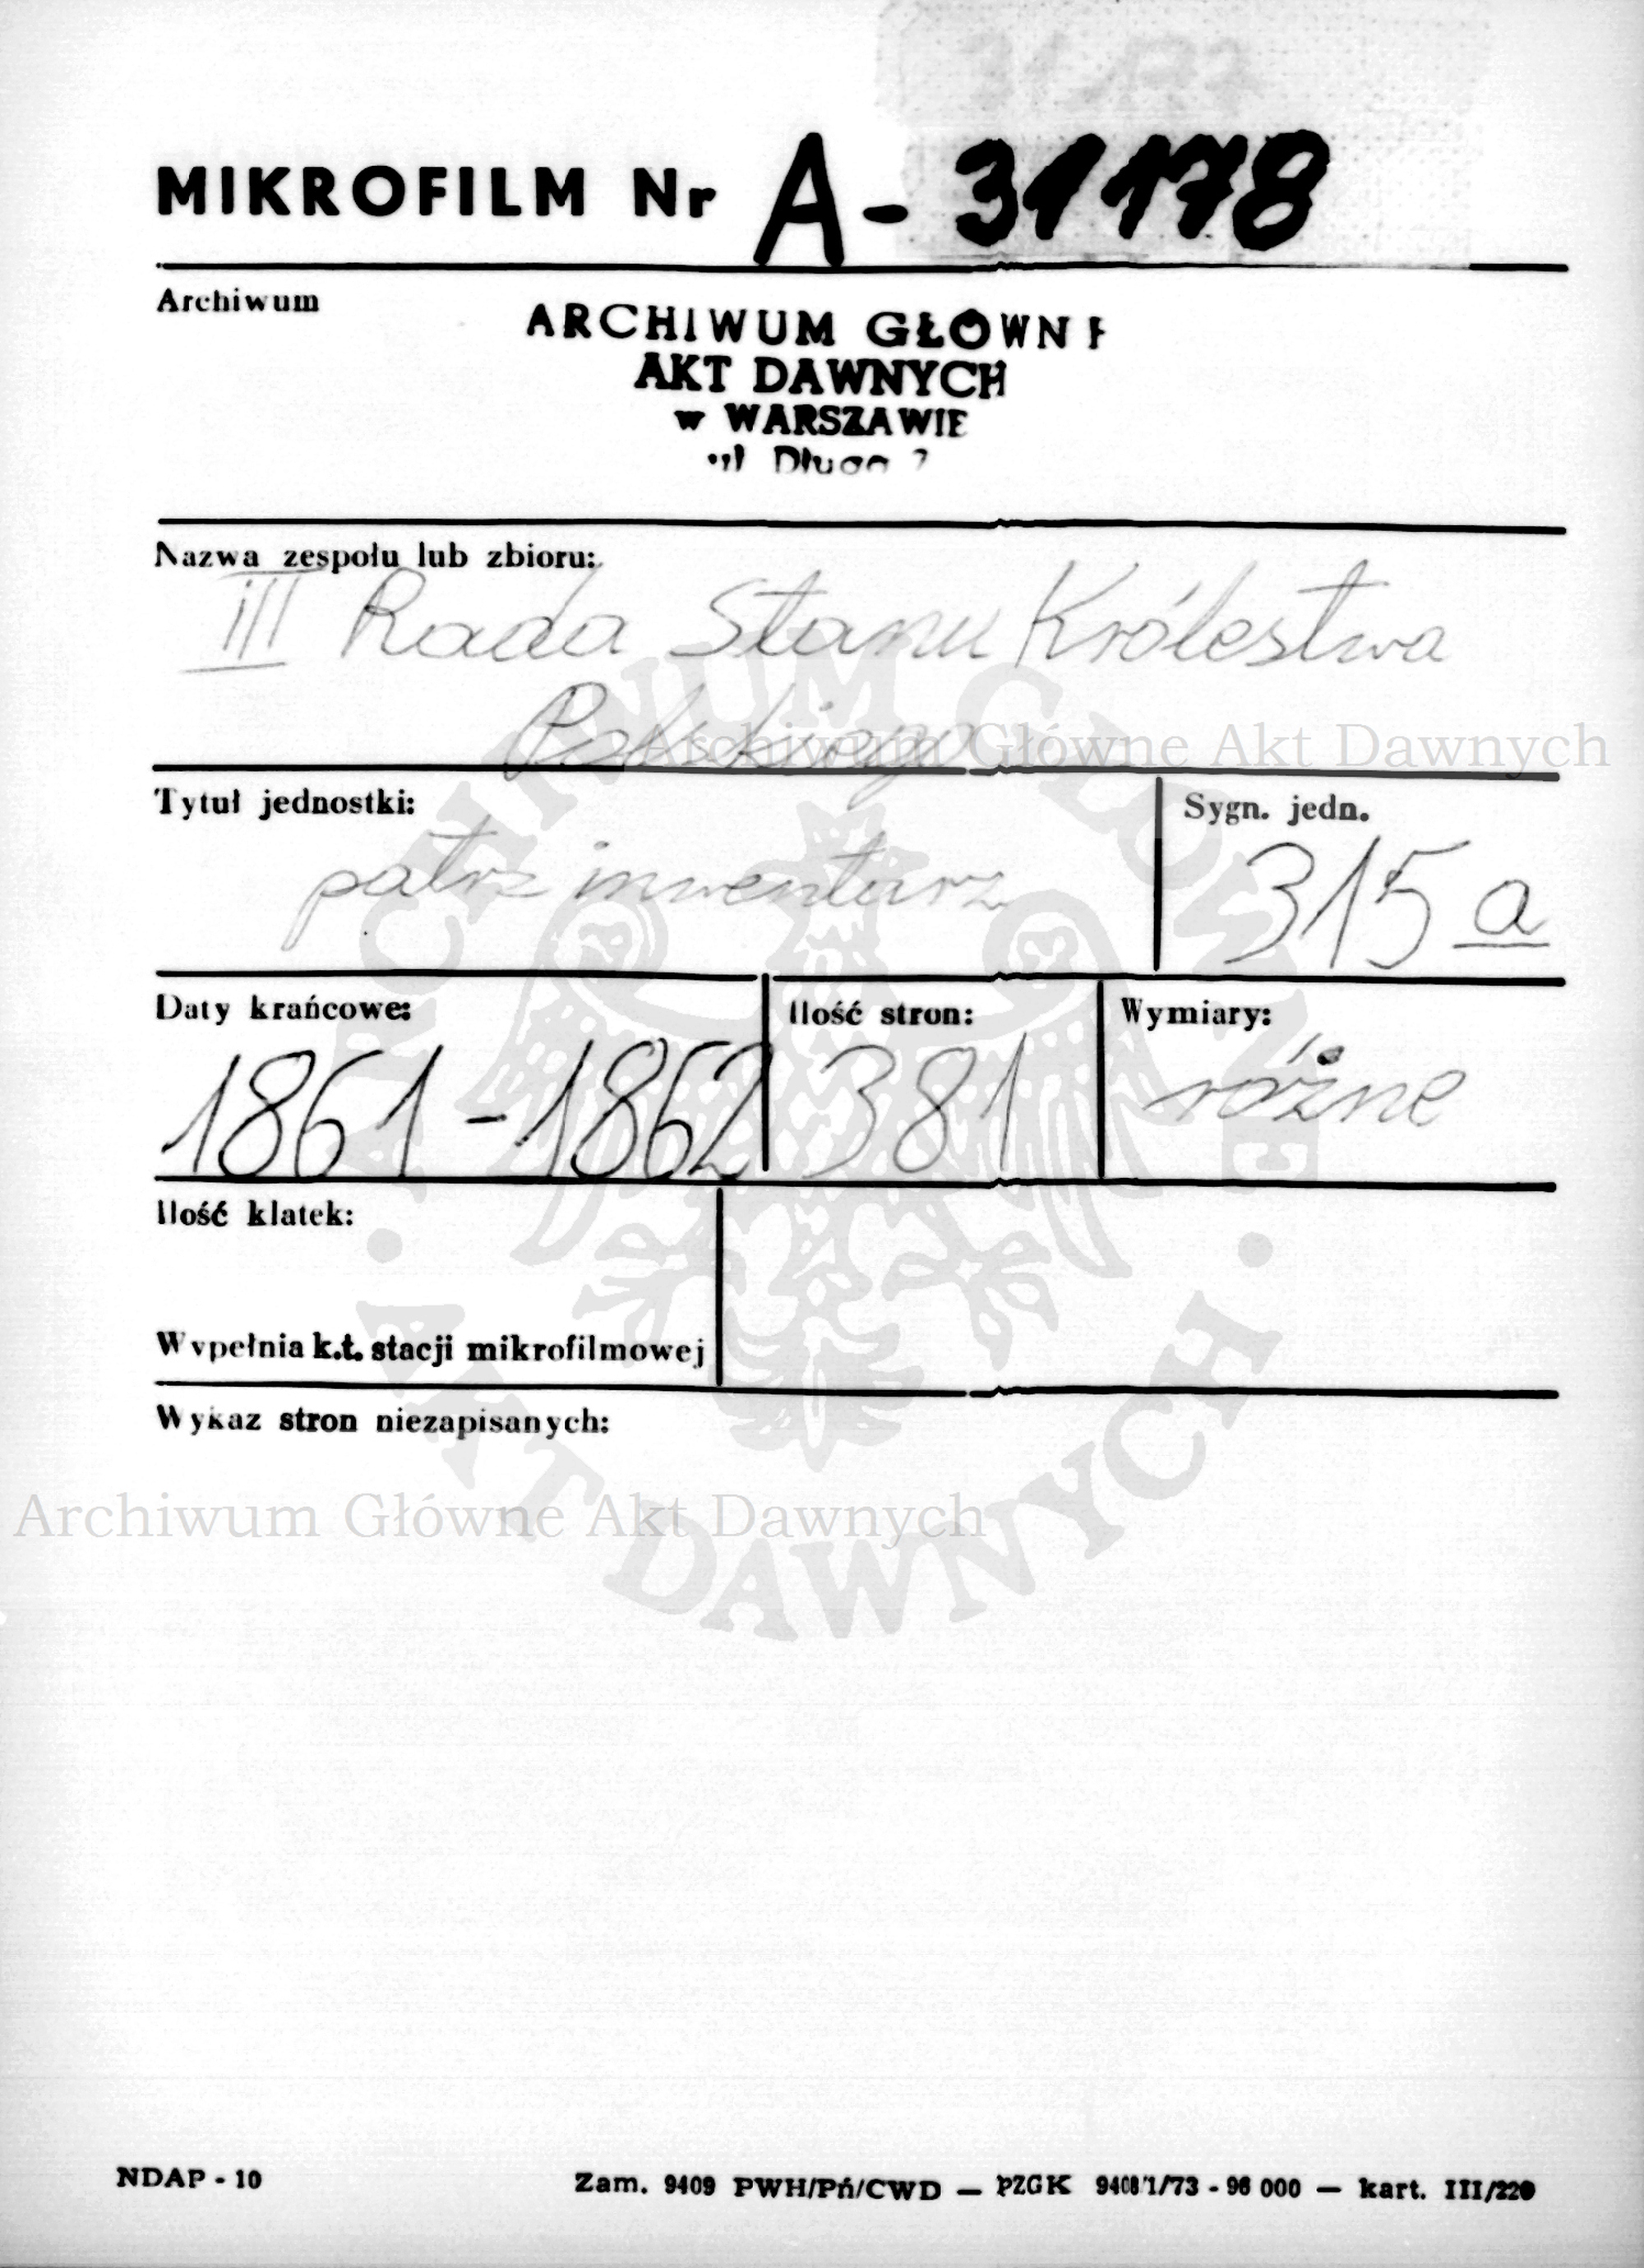 MIKROFILM Nr A-31178
Archiwum
ARCHIWUM GŁÓWNE
AKT DAWNYCH
w WARSZAWIE
ul Długa 7
Nazwa zespołu lub zbioru:
III Rada Stanu Królestwa
Polskiego
Archiwum Główne Akt Dawnych
Tytuł jednostki:
patrz inwentarz
Sygn. jedn.
315 a
Daty krańcowe:
1861-1862
Ilość stron:
381
Wymiary:
różne
Ilość klatek:
Wypełnia k.t. stacji mikrofilmowej
Wykaz stron niezapisanych:
Archiwum Główne Akt Dawnych
ARCHIWUM GŁÓWNE · AKT DAWNYCH ·
NDAP - 10
Zam. 9409 PWH/Pń/CWD — PZGK 9408/1/73 - 96 000 — kart. III/220